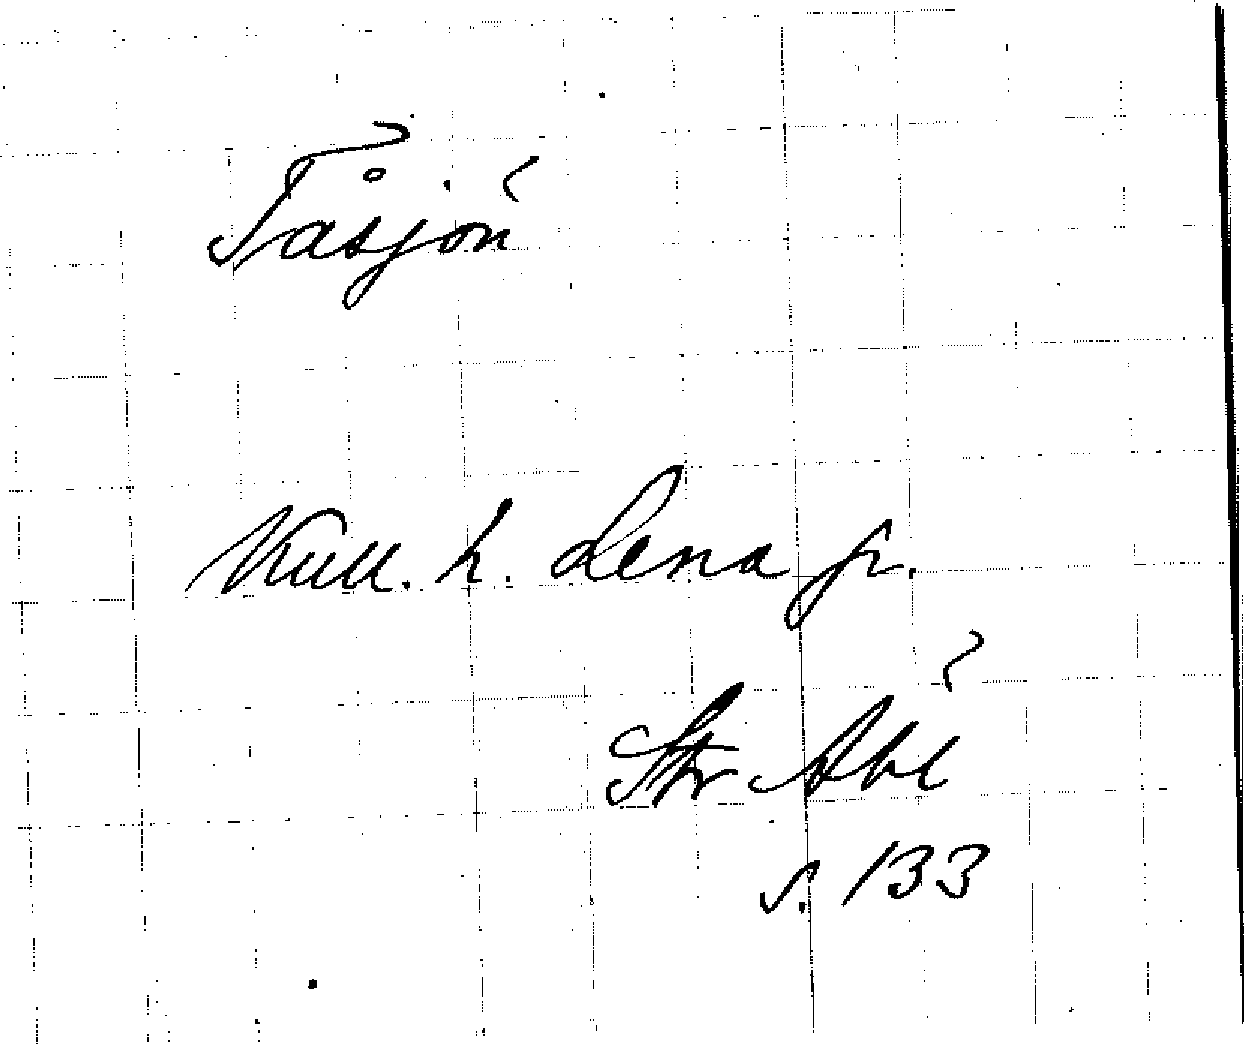 Tåsjön
Kull. h. Lena fr.
Str Åbl
s. 133